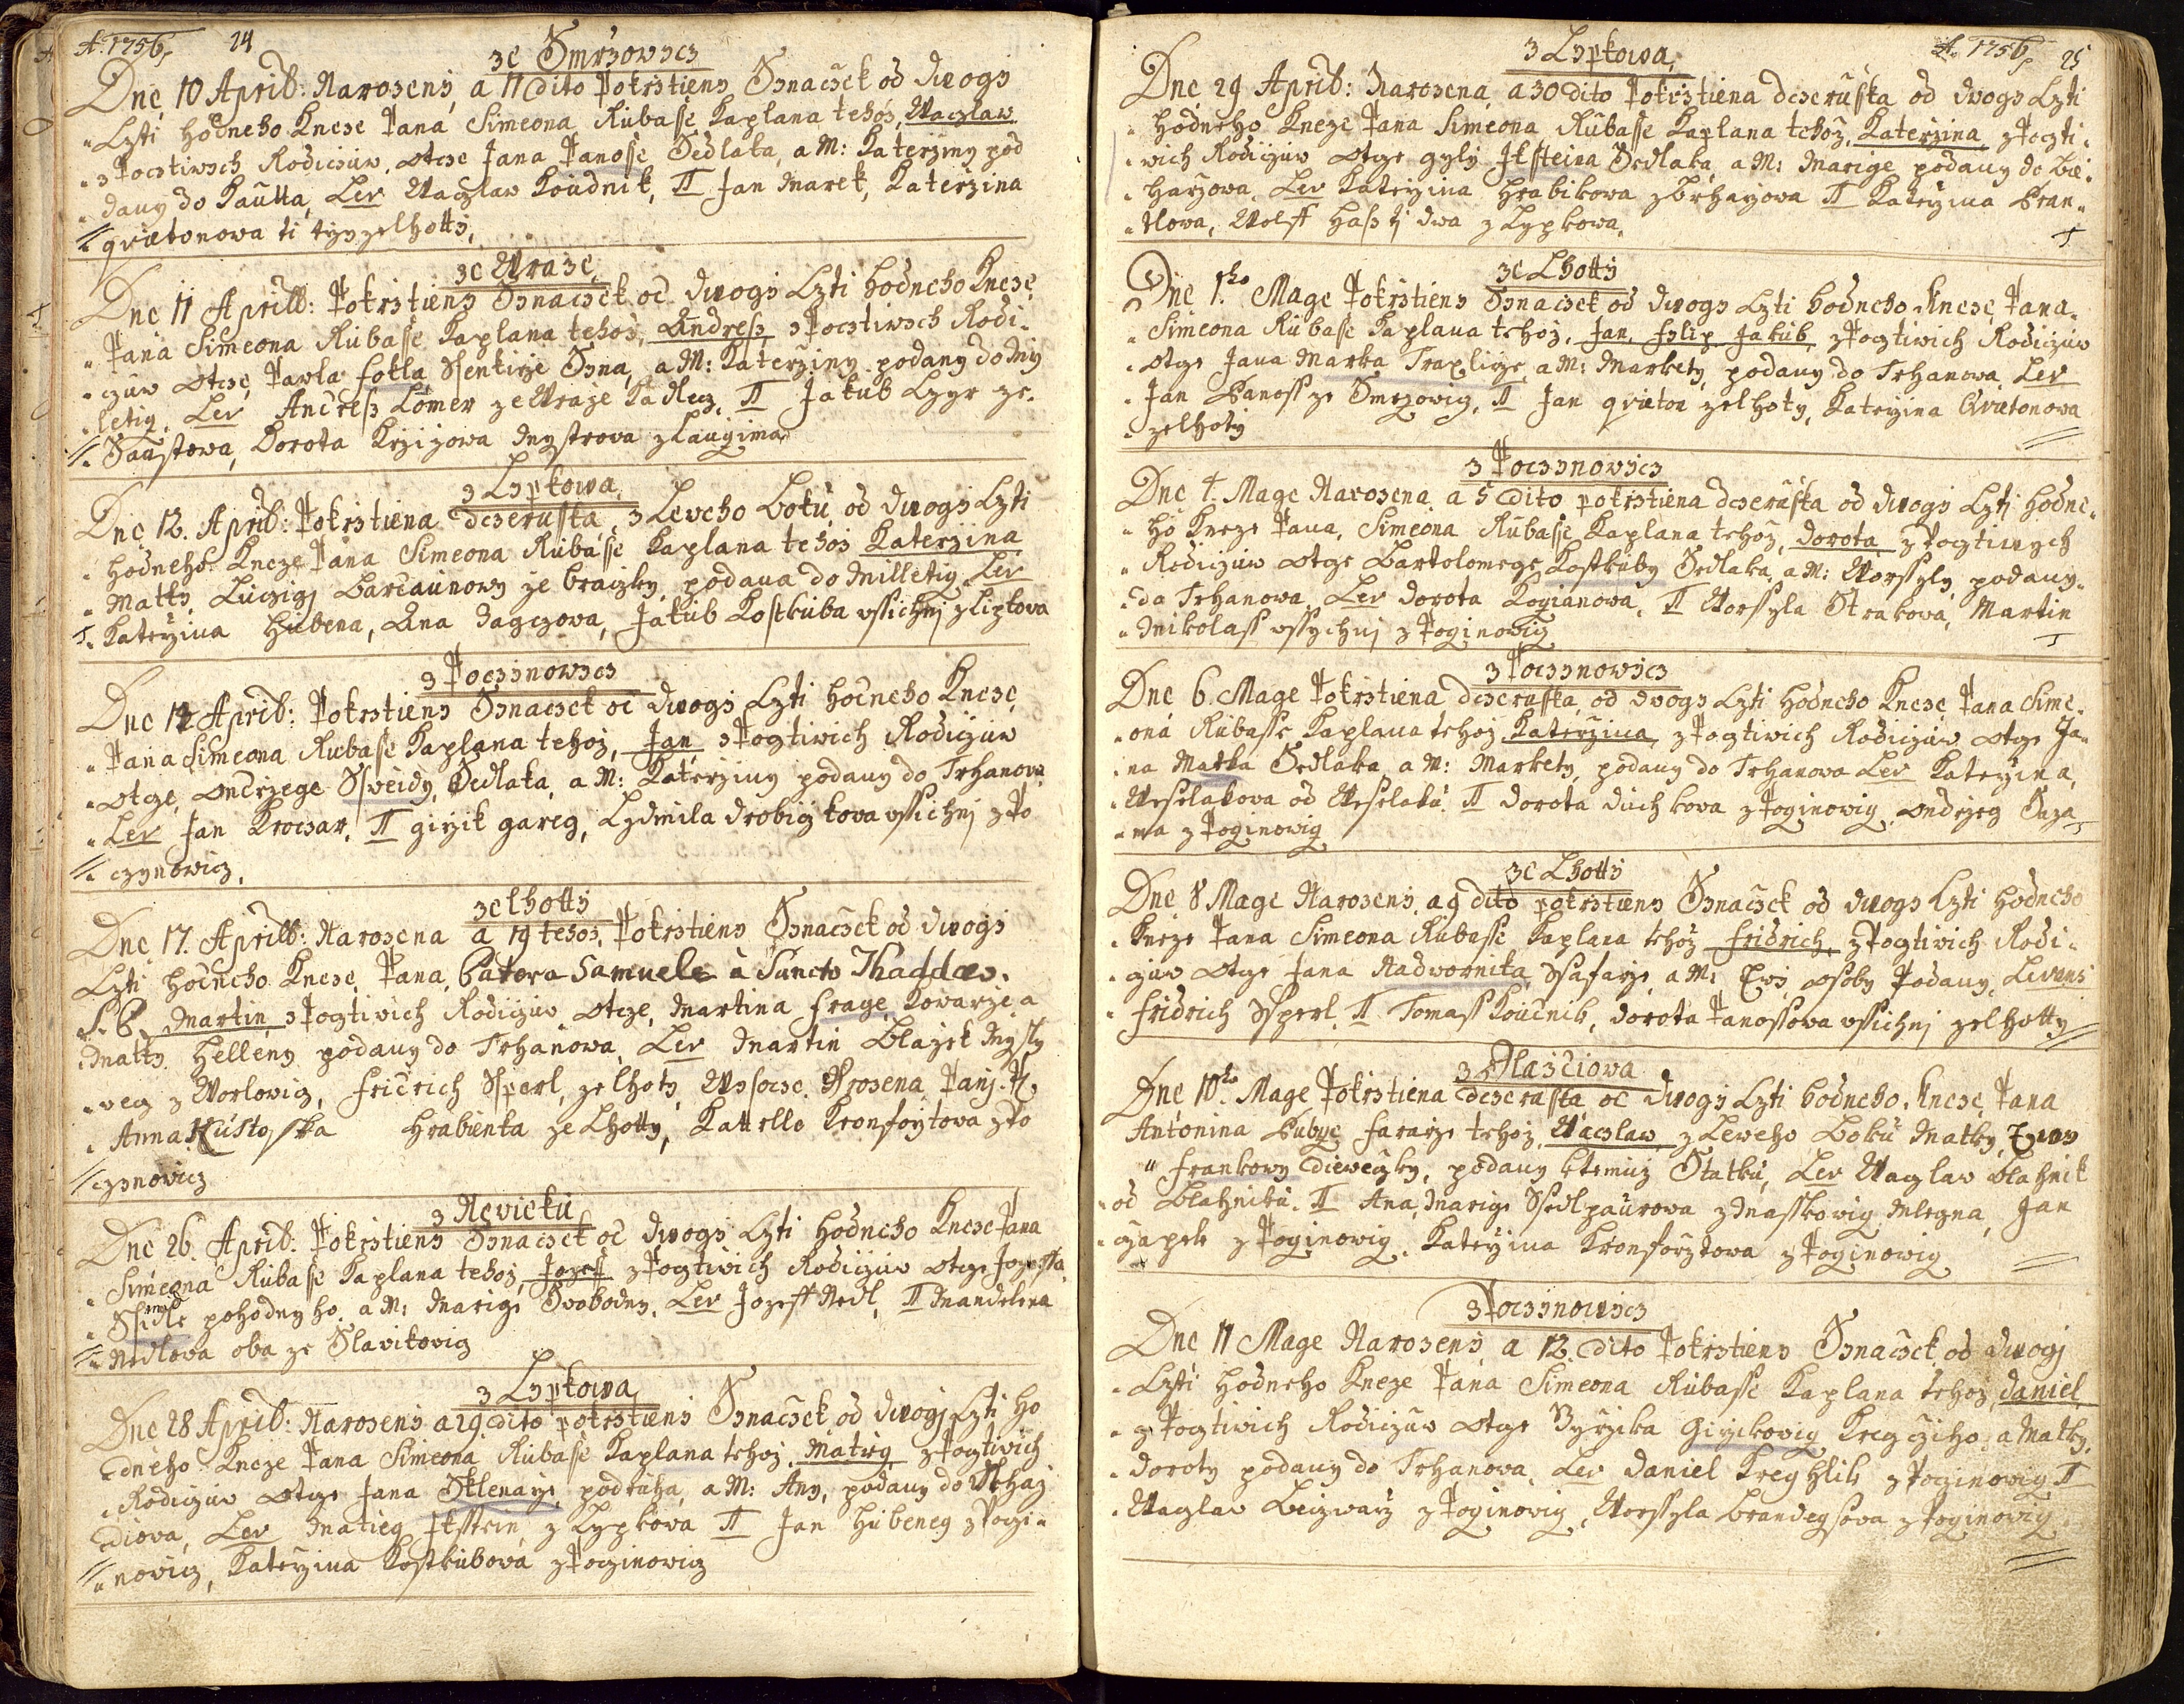 A. 1756, 24
ze Smrzowicz
Dne 10 Aprill: Narozeny, a 11 dito Pokrztieny Synaczek od dwogy
Czti hodneho Kneze Pana Simeona Rubasse Kaplana tehoz, Waczlaw
z Pocztiwych Rodiczuw, otcze Jana Panosse Sedlaka, a M: Katerziny pod
dany do Kautta, Lev Waczlaw Koudnik, II Jan Marek, Katerzina
qvietonowa ti tyz zelhotty,
ze Wraze
Dne 11 Aprill: Pokrztieny Synaczek od dwogy Czti hodneho Kneze
Pana Simeona Rubasse Kaplana tehoz, Andress, z Pocztiwych Rodi-
czuw otcze, Pawla fokla Ssenkirze Syna, a M: Katerziny podany do Mil
letig, Lev Andress Lomer ze Wraze Kadlecz, II Jakub Czyr ze-
Saustowa, Dorota Krzizowa Mystrova z Laugima
z Lypkowa
Dne 12. Aprill: Pokrztiena dczeruska, z Leveho Boku, od dwogy Czti
hodneho Kneze Pana Simeona Rubasse Kaplana tehoz Katerzina
Matky, Luczigi Barcaunowy ze braizky, podana do Milletig Lev
Katerzina Hubena, Ana Jagczova, Jakub Kostkuba vssichni z Lipkova
z Poczinowicz
Dne 12 Aprill: Pokrztieny Synaczek od dwogy Czti hodneho Kneze
Pana Simeona Rubasse Kaplana tehoz, Jan z Pogtivich Rodiczuw
otcze, ondrzege Ssveidy, Sedlaka, a M: Katerziny podany do Trhanova
Lev Jan Kroczar, II girzik gareg, Lydmila drobiczkova vssichni z Po
czynowicz,
ze lhotty
Dne 17. Aprill: Narozena a 19 tehoz, Pokrztieny Synaczek od dwogy
Czti hodneho Kneze, Pana, Patera Samuele à Sancto Thaddæo.
S. P. Martin z Pogtivich Rodiczuw otcze, Martina fraye, Kovarze a
Matky Helleny podany do Trhanowa, Lev Martin Blazek Mysly
vecz z Worlowicz, Fridrich Ssperl, ze lhoty, Wysocze Urozena Pani. P.
Anna Hrabienka ze Lhotty, Kattrlle Kronforytova z Po
czynovicz
z Nevicku
Dne 26. Aprill: Pokrztieny Synaczek od dwogy Czti hodneho Kneze Pana
Simeona Rubasse Kaplana tehoz, Jozeff z Pogtivich Rodiczuw otcze Jozeffa
Ssidle pohodnyho, a M: Marige Svobodny, Lev Jozeff Nedl, II Mandelena
Nedlova oba ze Slavikovicz
z Lypkowa
Dne 28 Aprill: Narozeny a 29 dito pokrztieny Synaczek od dwogi Czti ho
dneho Kneze Pana Simeona Rubasse Kaplana tehoz, Matieg z Pogtivich
Rodiczuw otcze Jana Sklenarze, podruha, a M: Any, podany do Chaz
diova, Lev Matieg Jkstein, z Lypkova II Jan Hubeneg z Pogi-
novicz, Katerzina Kostkubova z Poginowicz
A. 1756, 25
z Lypkowa,
Dne 29 Aprill: Narozena a 30 dito Pokrztiena dczeruska od dwogy Czti
hodneho Kneze Pana Simeona Rubasse Kaplana tehoz, Katerzina z Poczti-
wich Rodiczuw otcze gyly Jkssteina Sedlaka, a M: Marige podany do Be-
harzowa, Lev Katerzina hrabikova z Brharzowa II Katerzina Bran-
tlowa, Wolff Hass ti dwa z Lypkowa,
ze Lhotty
Dne 1ho Mage Pokrztieny Synaczek od dwogy Czti hodneho Kneze Pana
Simeona Rubasse Kaplana tehoz, Jan, Fylip Jakub, z Pogtivich Rodiczuw
otcze Jana Marka Traplirze, a M: Markety, podany do Trhanowa, Lev
Jan Panoss ze Smrzowicz, II Jan qvieton ze lhoty, Katerzina Qvietonowa
ze lhoty
z Poczynowicz
Dne 4. Mage Narozena a 5 dito pokrztiena dczeruska od dwogy Czti hodne-
ho Kneze Pana, Simeona Rubasse Kaplana tehoz, Dorota z Pogtiwych
Rodiczuw otcze Bartolomege Kostkuby Sedlaka, a M: Worssyly podany-
do Trhanowa, Lev Dorota Kozianowa, II Worssyla Strakova, Martin
Mikolass vssychni z Poginowicz
z Poczynowicz
Dne 6. Mage Pokrztiena dczeruska, od dwogy Czti hodneho Kneze Pana Sime-
ona Rubasse Kaplana tehoz Katerzina, z Pogtivich Rodiczuw otcze Ja-
na Matka Sedlaka a M: Markety, podany do Trhanowa Lev Katerzina,
Weselakova od Weselaku. II Dorota Duchkova z Poginowicz, ondrzeg Saza-
ma z Poginowicz
ze Lhotty
Dne 8 Mage Narozeny, a 9 dito pokrztieny Synaczek od dwogy Czti hodneho
Kneze Pana Simeona Rubasse Kaplana tehoz Fridrich, z Pogtivich Rodi-
czuw otcze Jana Nadvornika, Ssafarze, a M: Ewy osoby Podany, Levans
Fridrich Ssperl, II Tomass Koudnik, Dorota Panossova vssichni ze lhotty
z Dlazdiowa
Dne 10ho Mage Pokrztiena dczeruska od dwogy Czti hodneho, Kneze, Pana
Antonina Bubye, Fararze tehoz, Waczlaw z Leweho Boku Matky, Ewy
Frankowy dieveczky, podany k temuz Statku, Lev Waczlav Blahnik
od Blahniku. II Ana Marige Ssedlpaurova z Masskovicz Mlegna, Jan
Czapek z Poginowicz, Katerzina Kronforztowa z Poginowicz
z Poczinowicz
Dne 11 Mage Narozeny a 12. dito Pokrztieny Synaczek, od dwogi
Czti hodneho Kneze Pana Simeona Rubasse Kaplana tehoz, Daniel,
z Pogtivich Rodiczuw otcze Gyrzika Girzikovicz Kregczjho, a Matky
Doroty podany do Trhanova, Lev Daniel Kreghlik z Poginowicz II
Waczlav Beizwarz z Poginovicz, Worssyla Brandeysova z Poginovicz